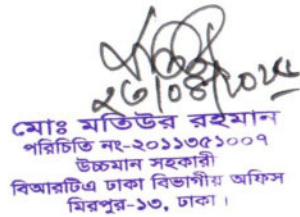 ২৩/০৪/২০২৫
মোঃ মতিউর রহমান
পরিচিতি নং-২০১১৩৫১০০৭
উচ্চমান সহকারী
বিআরটিএ ঢাকা বিভাগীয় অফিস
মিরপুর-১৩, ঢাকা।